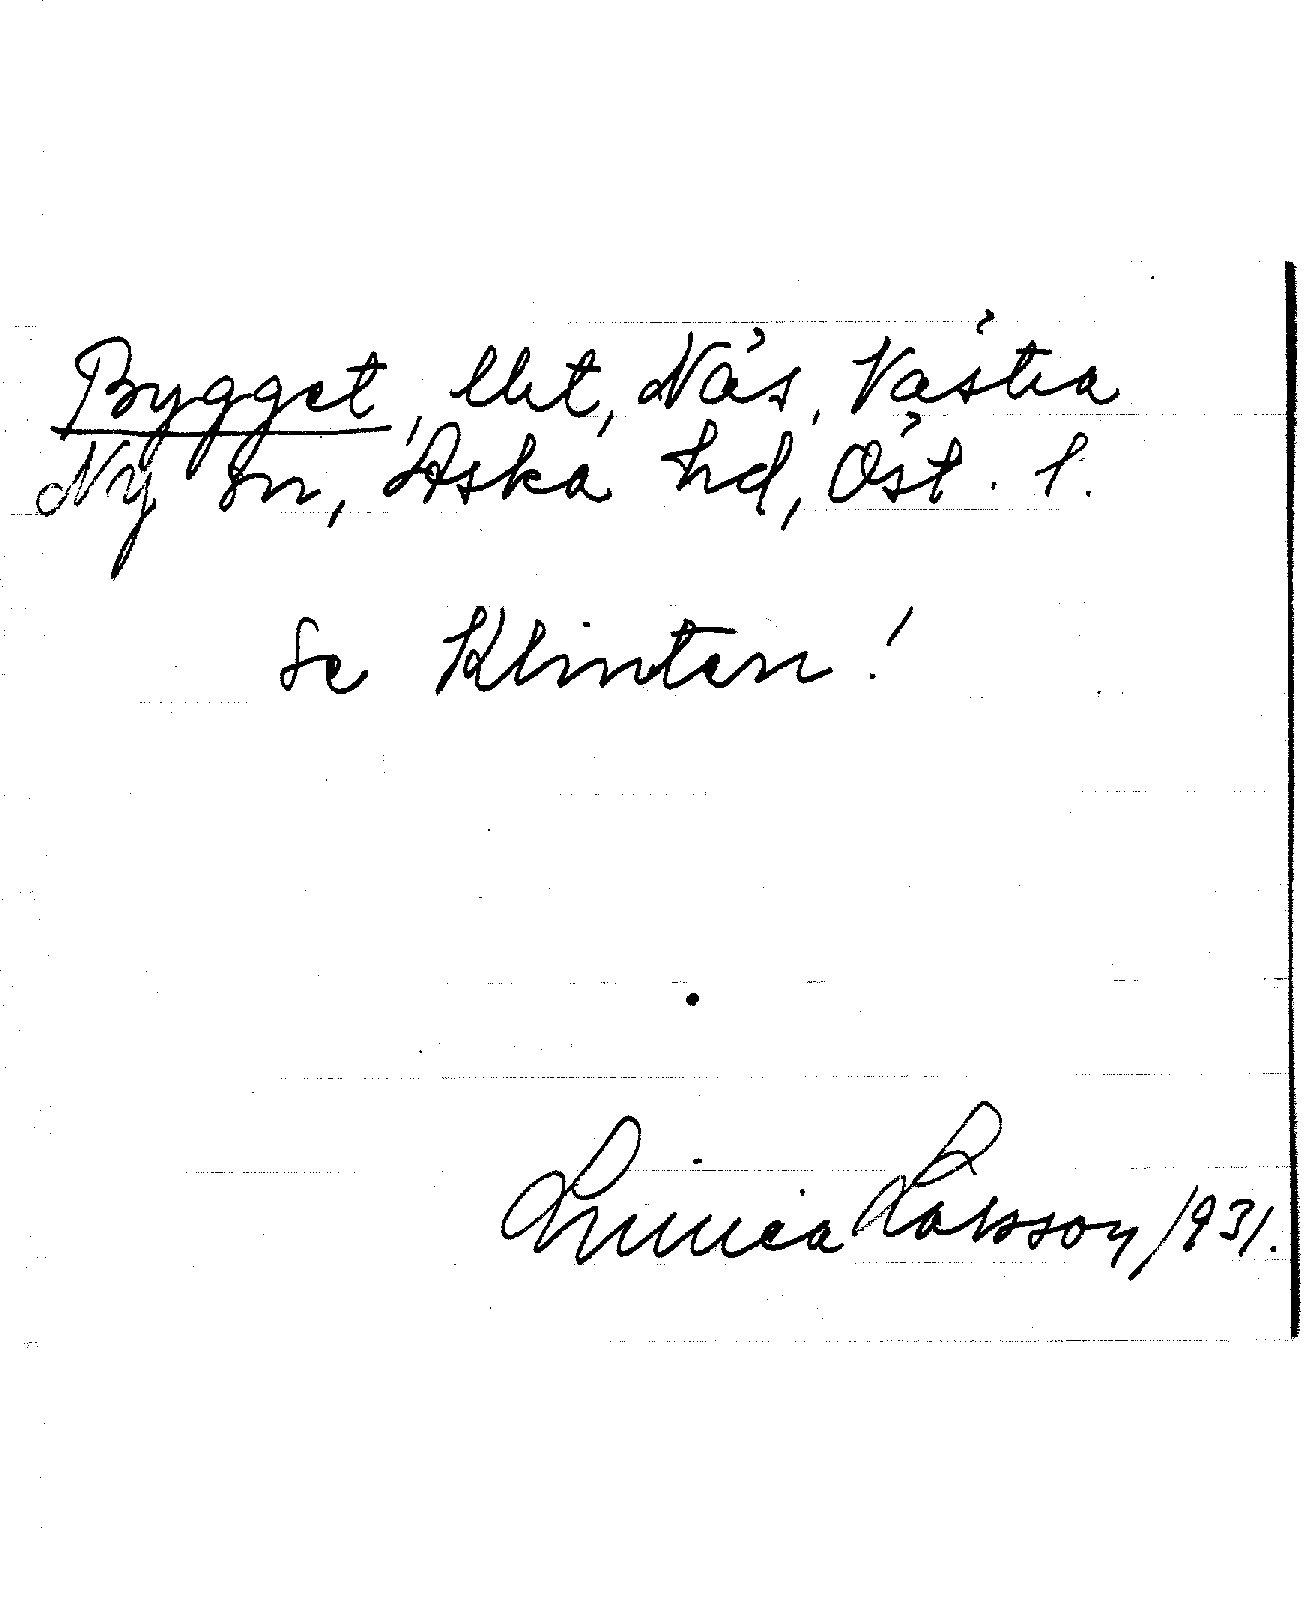 Bygget, lht, Näs, Västra
Ny sn, Aska hd, Öst. l.
Se Klinten!
Linnea Larsson/1931.